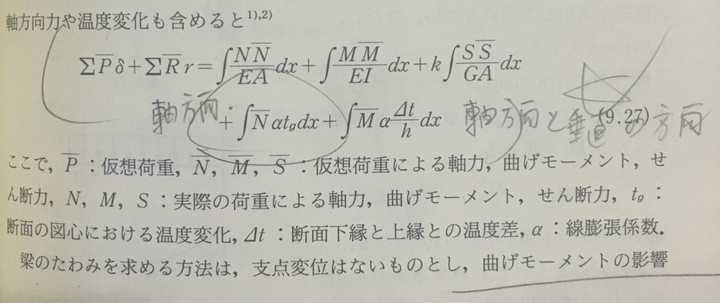 軸方向力や温度変化も含めると1),2)
ΣP̅δ+ΣR̅r=∫NN̅/EA dx+∫MM̅/EI dx+k∫SS̅/GA dx
軸方向: +∫N̅αt₀dx+∫M̅α Δt/h dx 軸方向と垂直の方向 (9.27)
ここで，P̅：仮想荷重，N̅，M̅，S̅：仮想荷重による軸力，曲げモーメント，せ
ん断力，N，M，S：実際の荷重による軸力，曲げモーメント，せん断力，t₀：
断面の図心における温度変化，Δt：断面下縁と上縁との温度差，α：線膨張係数．
梁のたわみを求める方法は，支点変位はないものとし，曲げモーメントの影響